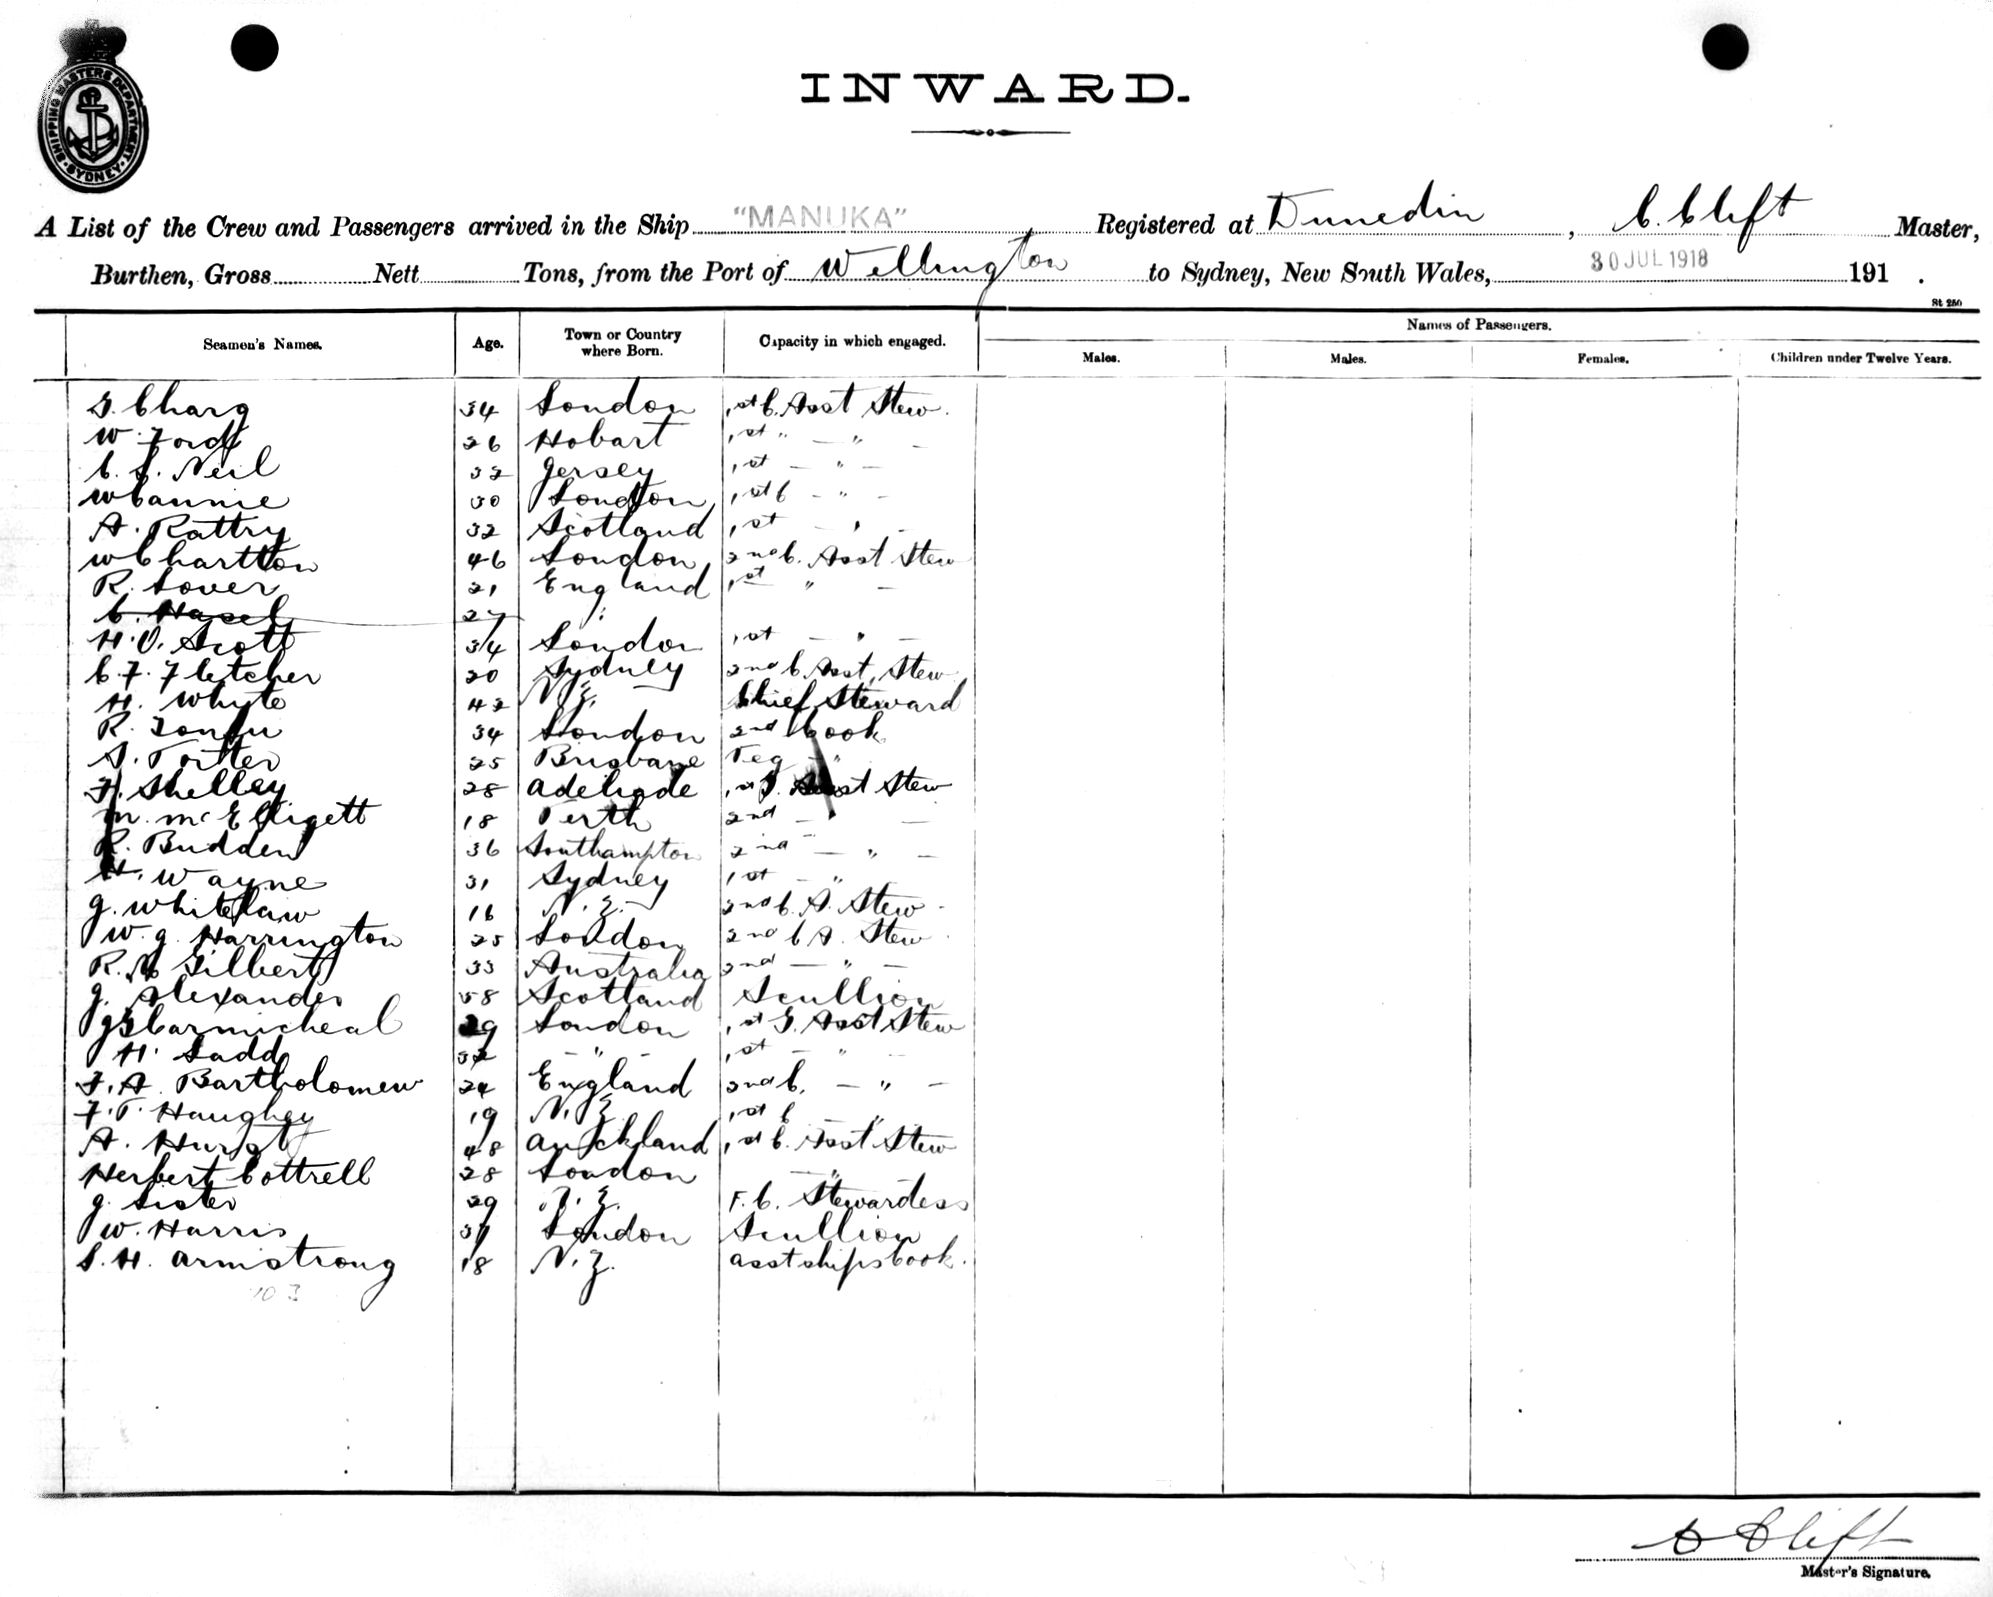 SHIPPING MASTERS DEPARTMENT · SYDNEY ·
INWARD.
A List of the Crew and Passengers arrived in the Ship "MANUKA" Registered at Dunedin, C. Clift Master,
Burthen, Gross Nett Tons, from the Port of Wellington to Sydney, New South Wales, 30 JUL 1918 191 .
St 250
Seamen's Names. Age. Town or Country where Born. Capacity in which engaged. Names of Passengers.
Males. Males. Females. Children under Twelve Years.
Charg 34 London 1st C. Asst Stew.
W. Ford 26 Hobart 1st " — " —
C. S. Neil 32 Jersey 1st — " —
W Cannie 30 London 1st C — " —
A. Rattry 32 Scotland 1st — " —
W Chartton 46 London 2nd C. Asst Stew
R. Lover 21 England 1st " —
C. Hasel 27 "
H. O. Scott 34 London 1st — " —
C. F. Fletcher 20 Sydney 2nd C. Asst. Stew
H. Whyte 42 N.Z. Chief Steward
R. 34 London 2nd Cook
25 Brisbane Veg "
F. Shelley 28 Adeliade 1st S. Asst Stew
M. McElligett 18 Perth 2nd — " —
R. Budden 36 Southampton 2nd — " —
H. Wayne 31 Sydney 1st — "
J. Whitelaw 16 N.Z. 2nd C. A. Stew
W. J. Harrington 25 London 2nd C A. Stew
R. M Gilbert 33 Australia 2nd — " —
J. Alexander 58 Scotland Scullion
J G Carmicheal 29 London 1st S. Asst Stew
H. Ladd 32 — " — 1st — " —
F. A. Bartholomew 24 England 2nd C. — " —
F. T. Haughey 19 N.Z. 1st C — "
A. Hurst 48 Auckland 1st C. Asst Stew
Herbert Cottrell 28 London — "
J. Sister 29 N.Z. F. C. Stewardess
W. Harris 37 London Scullion
S. H. Armstrong 18 N.Z. Asst ships Cook.
103
C Clift
Master's Signature.